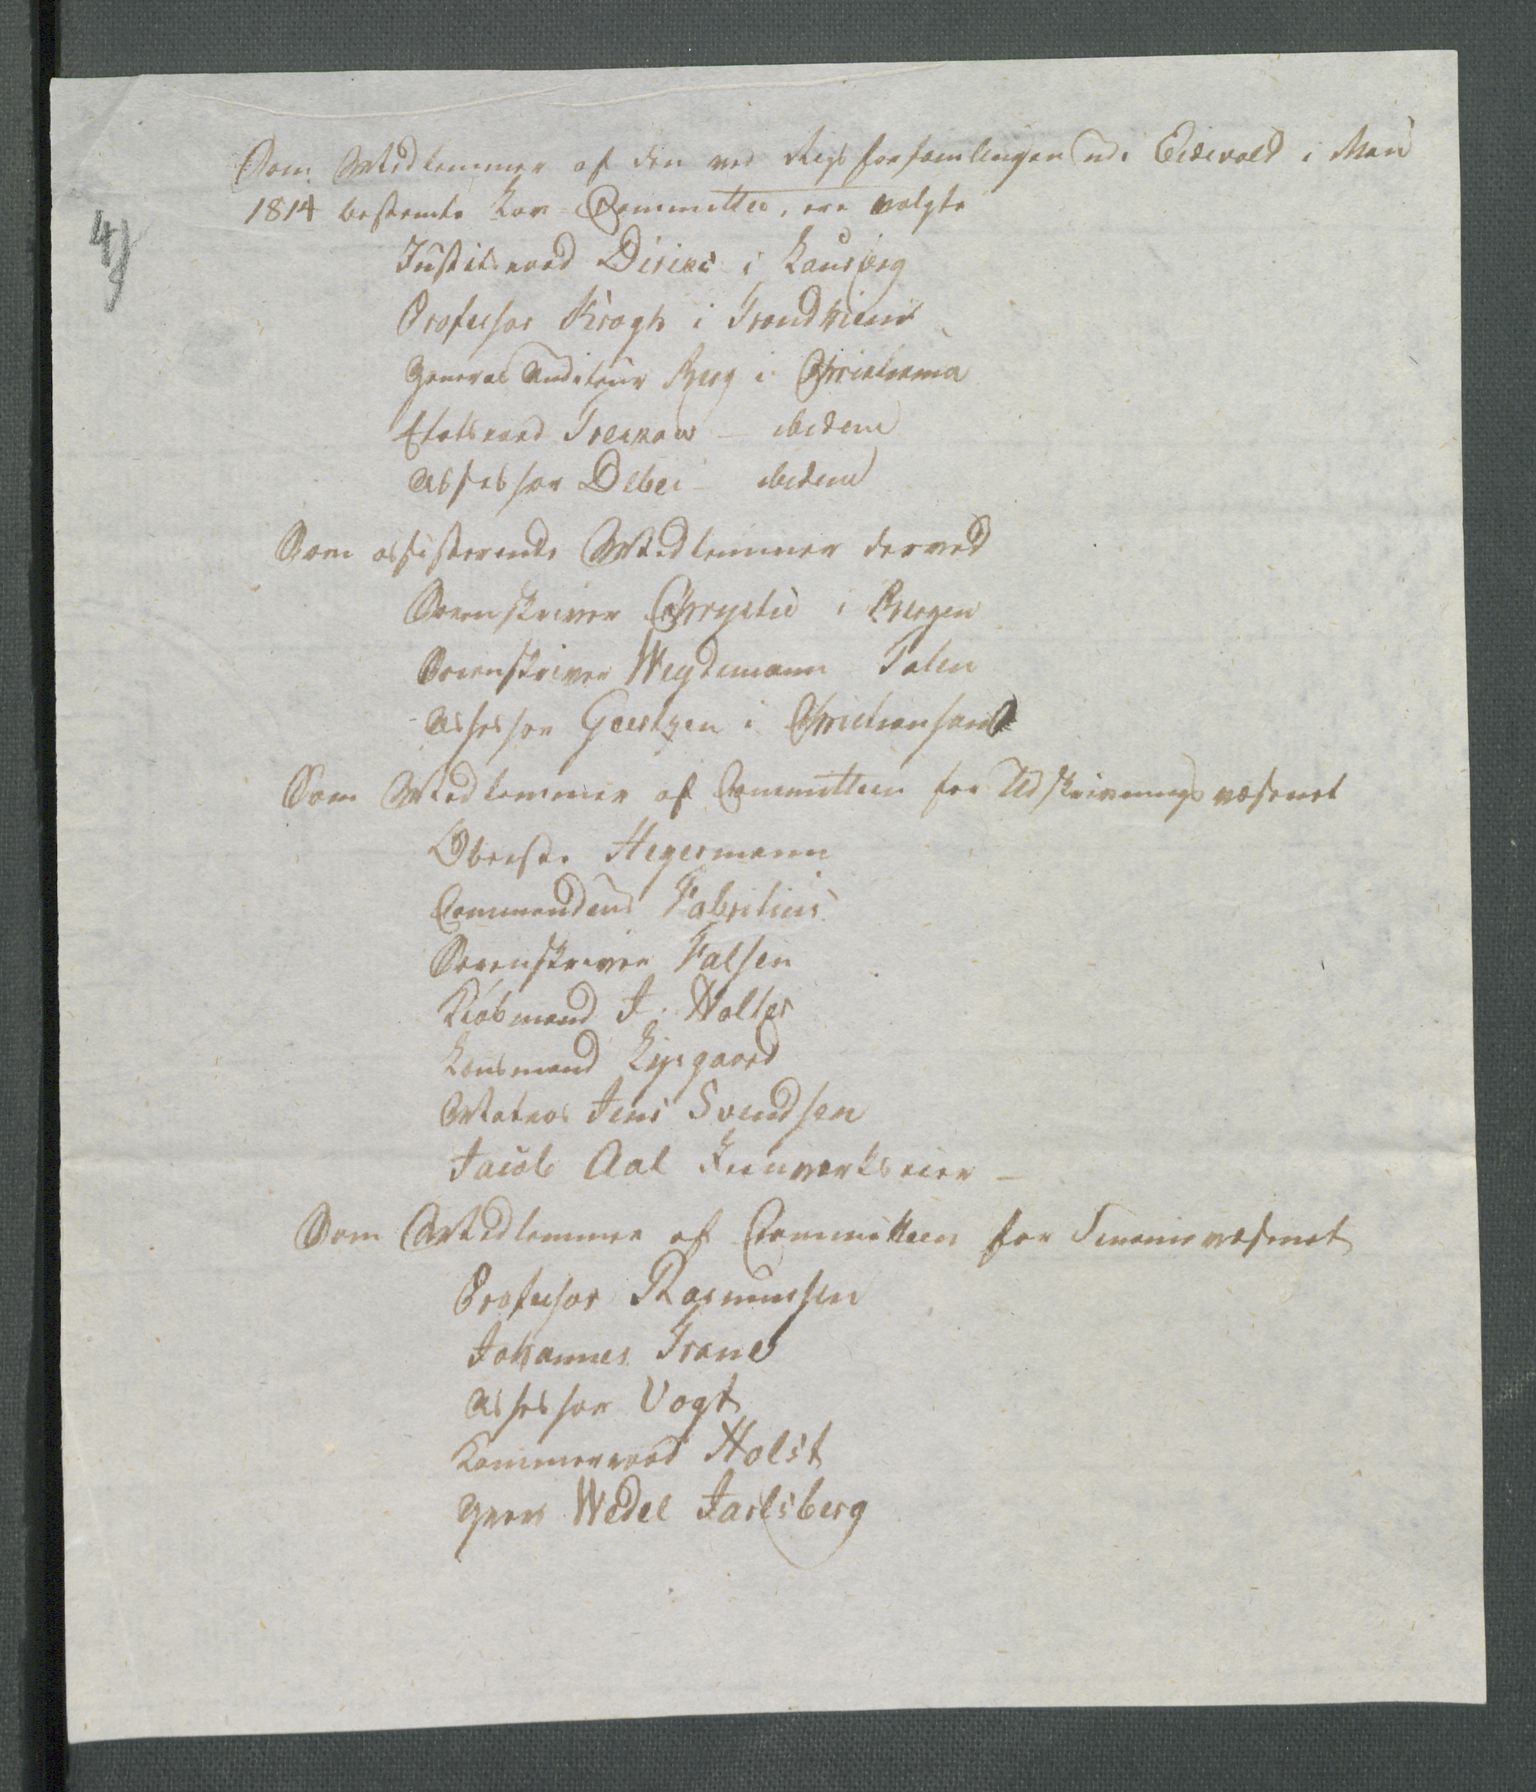 Som Medlemmer af den ved Rigsforsamlingen udi Eidsvold i Mai
1814 bestemte Lov-Committee, ere valgte
4)
Justitsraad Diriks i Laurvig
Professor Krogh i Trondhiem
General Auditeur Berg i Christiania
Etatsraad Treskow – ibidem
Assessor Debes – ibidem
Som assisterende Medlemmer derved
Sorenskriver Chrystie i Bergen
Sorenskriver Weydemann Toten
Assessor Geertzen i Christiansand
Som Medlemmer af Committeen for Udskrivningsvæsenet
Oberste Hegermann
Commandeur Fabritius
Sorenskriver Falsen
Kiøbmand J. Holter
Lensmand Lysgaard
Matros Jens Svendsen
Jacob Aal Jernverkseier –
Som Medlemmer af Committeen for Finansvæsenet
Professor Rasmussen
Johannes Irane
Assessor Vogt
Kammerraad Holst
Grev Wedel Jarlsberg